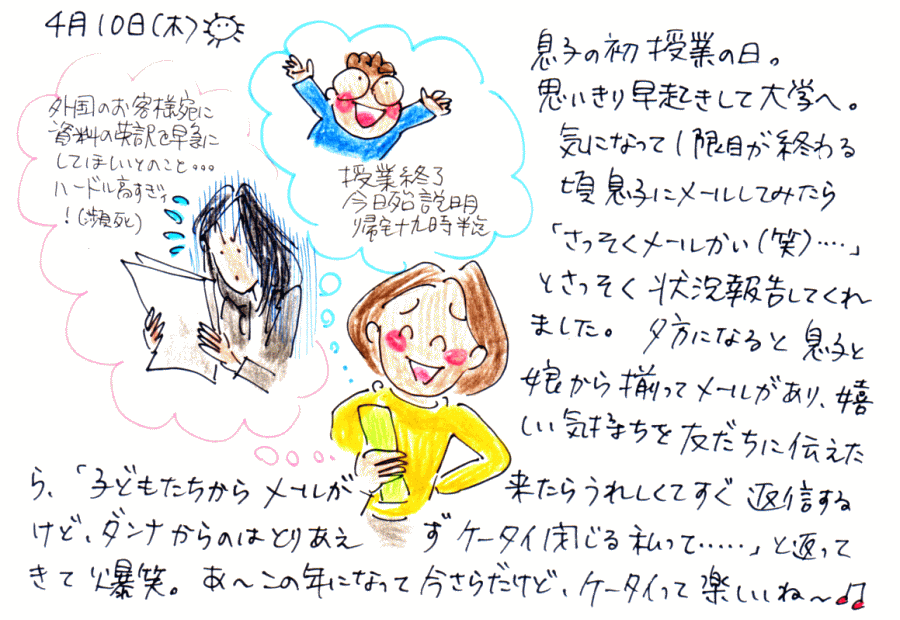 4月10日(木)
外国のお客様宛に
資料の英訳を早急に
してほしいとのこと…
ハードル高すぎィ
!(瀕死)
授業終了
今日殆説明
帰宅十九時半迄
息子の初授業の日。
思いきり早起きして大学へ。
気になって1限目が終わる
頃息子にメールしてみたら
「さっそくメールかい(笑)‥‥」
とさっそく状況報告してくれ
ました。夕方になると息子と
娘から揃ってメールがあり、嬉
しい気持ちを友だちに伝えた
ら、「子どもたちからメールが来たらうれしくてすぐ返信する
けど、ダンナからのはとりあえずケータイ閉じる私って‥‥‥」と返って
きて爆笑。あ〜この年になって今さらだけど、ケータイって楽しいね〜♫